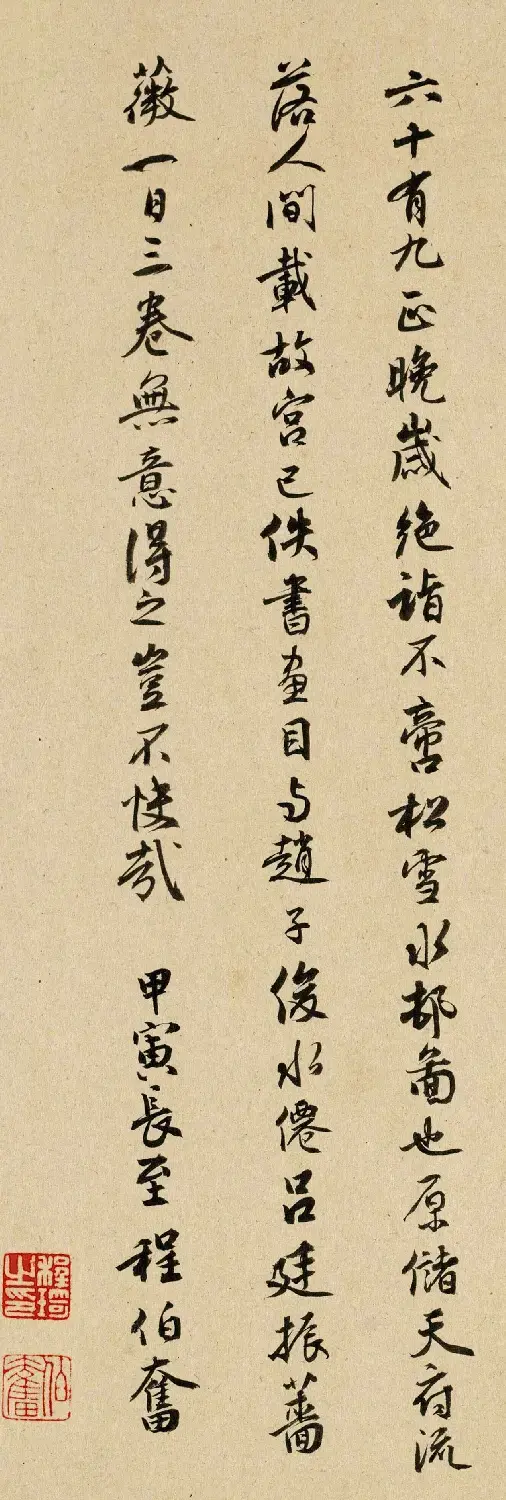 六十有九正晚歲絶詣不啻松雪水邨圖也原儲天府流
落人間載故宮已佚書畫目与趙子俊水僊呂廷振薔
薇一日三卷無意得之豈不快哉 甲寅長至程伯奮
程琦之印
伯奮